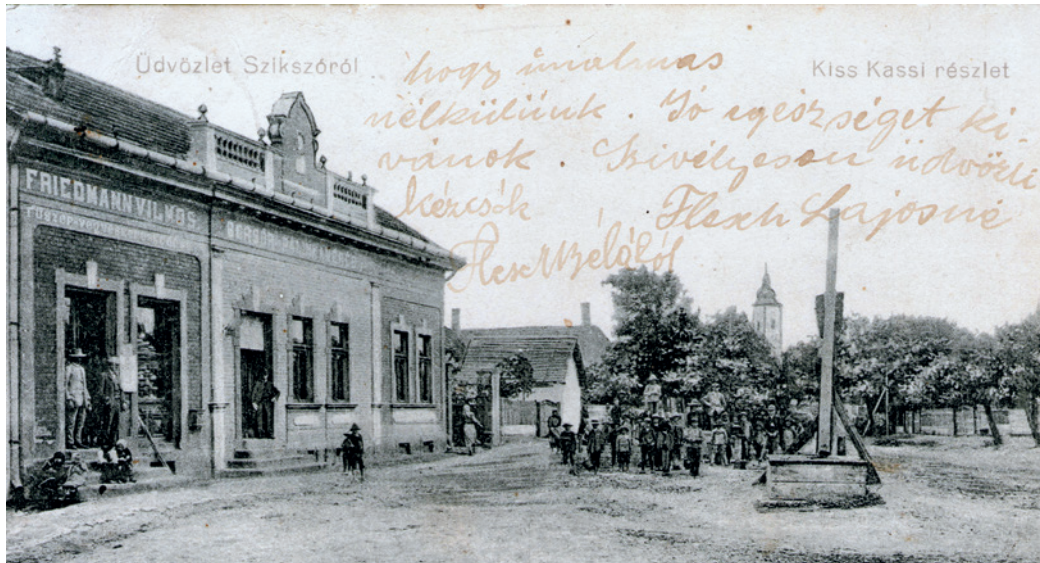 Üdvözlet Szikszóról
Kiss Kassi részlet
hogy unalmas
nélkülünk. Jó egészséget ki
vánok. Szivélyesen üdvözli
kézcsók Flesch Lajosné
Flesch Bélától
FRIEDMANN VILMOS